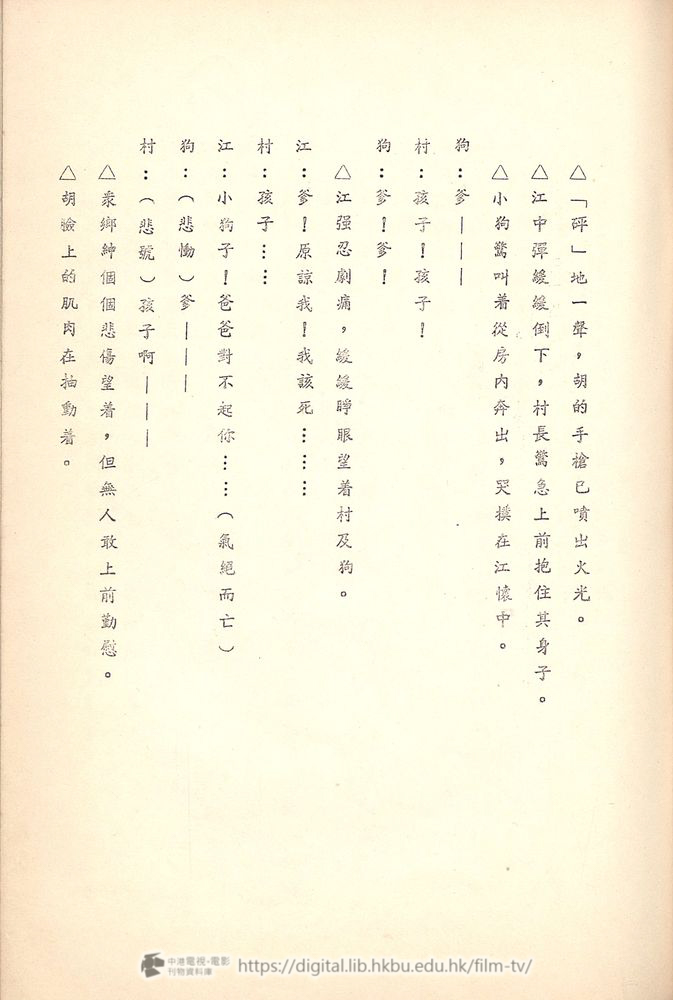 △「砰」地一聲，胡的手槍已噴出火光。
△江中彈緩緩倒下，村長驚急上前抱住其身子。
△小狗驚叫着從房內奔出，哭撲在江懷中。
狗：爹———
村：孩子！孩子！
狗：爹！爹！
△江强忍劇痛，緩緩睜眼望着村及狗。
江：爹！原諒我！我該死………
村：孩子……
江：小狗子！爸爸對不起你……（氣絕而亡）
狗：（悲慟）爹———
村：（悲號）孩子啊———
△衆鄉紳個個悲傷望着，但無人敢上前勸慰。
△胡臉上的肌肉在抽動着。
中港電視·電影
刊物資料庫
https://digital.lib.hkbu.edu.hk/film-tv/